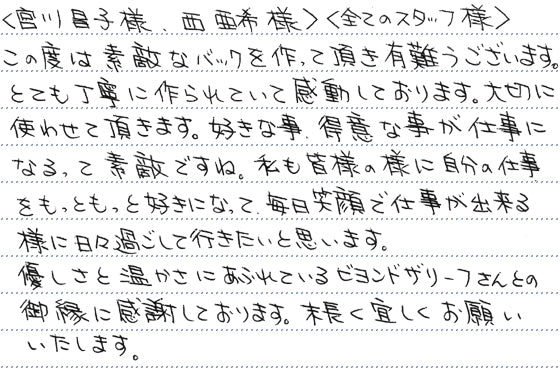 〈宮川昌子様、西亜希様〉〈全てのスタッフ様〉
この度は素敵なバックを作って頂き有難うございます。
とても丁寧に作られていて感動しております。大切に
使わせて頂きます。好きな事、得意な事が仕事に
なるって素敵ですね。私も皆様の様に自分の仕事
をもっともっと好きになって、毎日笑顔で仕事が出来る
様に日々過ごして行きたいと思います。
優しさと温かさにあふれているビヨンドザリーフさんとの
御縁に感謝しております。末長く宜しくお願い
いたします。